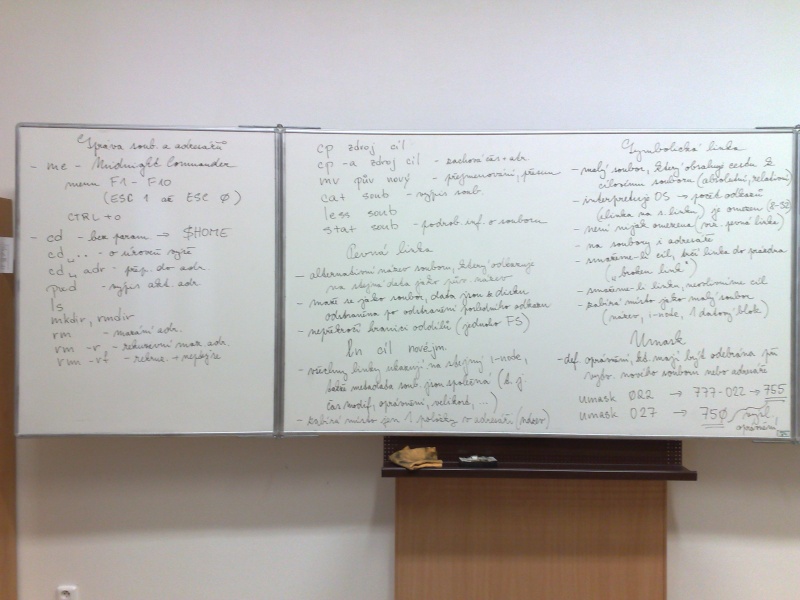 Správa soub. a adresářů
- mc - Midnight Commander
menu F1 - F10
(ESC 1 až ESC 0)
CTRL + o
- cd - bez param → $HOME
cd .. - o úroveň výše
cd adr - přep. do adr.
pwd - výpis akt. adr.
ls
mkdir, rmdir
rm - mazání adr.
rm -r - rekurzivní maz. adr.
rm -rf - rekur. + neptá se
cp zdroj cíl
cp -a zdroj cíl - zachová čas + adr.
mv pův nový - přejmenování, přesun
cat soub - výpis soub.
less soub
stat soub - podrob. inf. o souboru
Pevná linka
- alternativní název souboru, který odkazuje
na stejná data jako pův. název
- maže se jako soubor, data jsou z disku
odstraněna po odstranění posledního odkazu
- nepřekročí hranici oddílů (jednoho FS)
ln cíl novéjm.
- všechny linky ukazují na stejný i-node,
takže metadata soub. jsou společná (t.j.
čas modif, oprávnění, velikost, ...)
- zabírá místo jen 1 položky v adresáři (název)
Symbolická linka
- malý soubor, který obsahuje cestu k
cílovému souboru (absolutní, relativní)
- interpretuje OS → počet odkazů
(linka na s. linku) je omezen (8-32)
- není nijak omezena (viz. pevná linka)
- na soubory i adresáře
- smažeme-li cíl, míří linka do prázdna
("broken link")
- smažeme-li linku, neovlivníme cíl
- zabírá místo jako malý soubor
(název, i-node, 1 datový blok)
Umask
- def. oprávnění, kt. mají být odebrána při
vytvoř. nového souboru nebo adresáře
umask 022 → 777-022 → 755
umask 027 → 750 výsl.
oprávnění